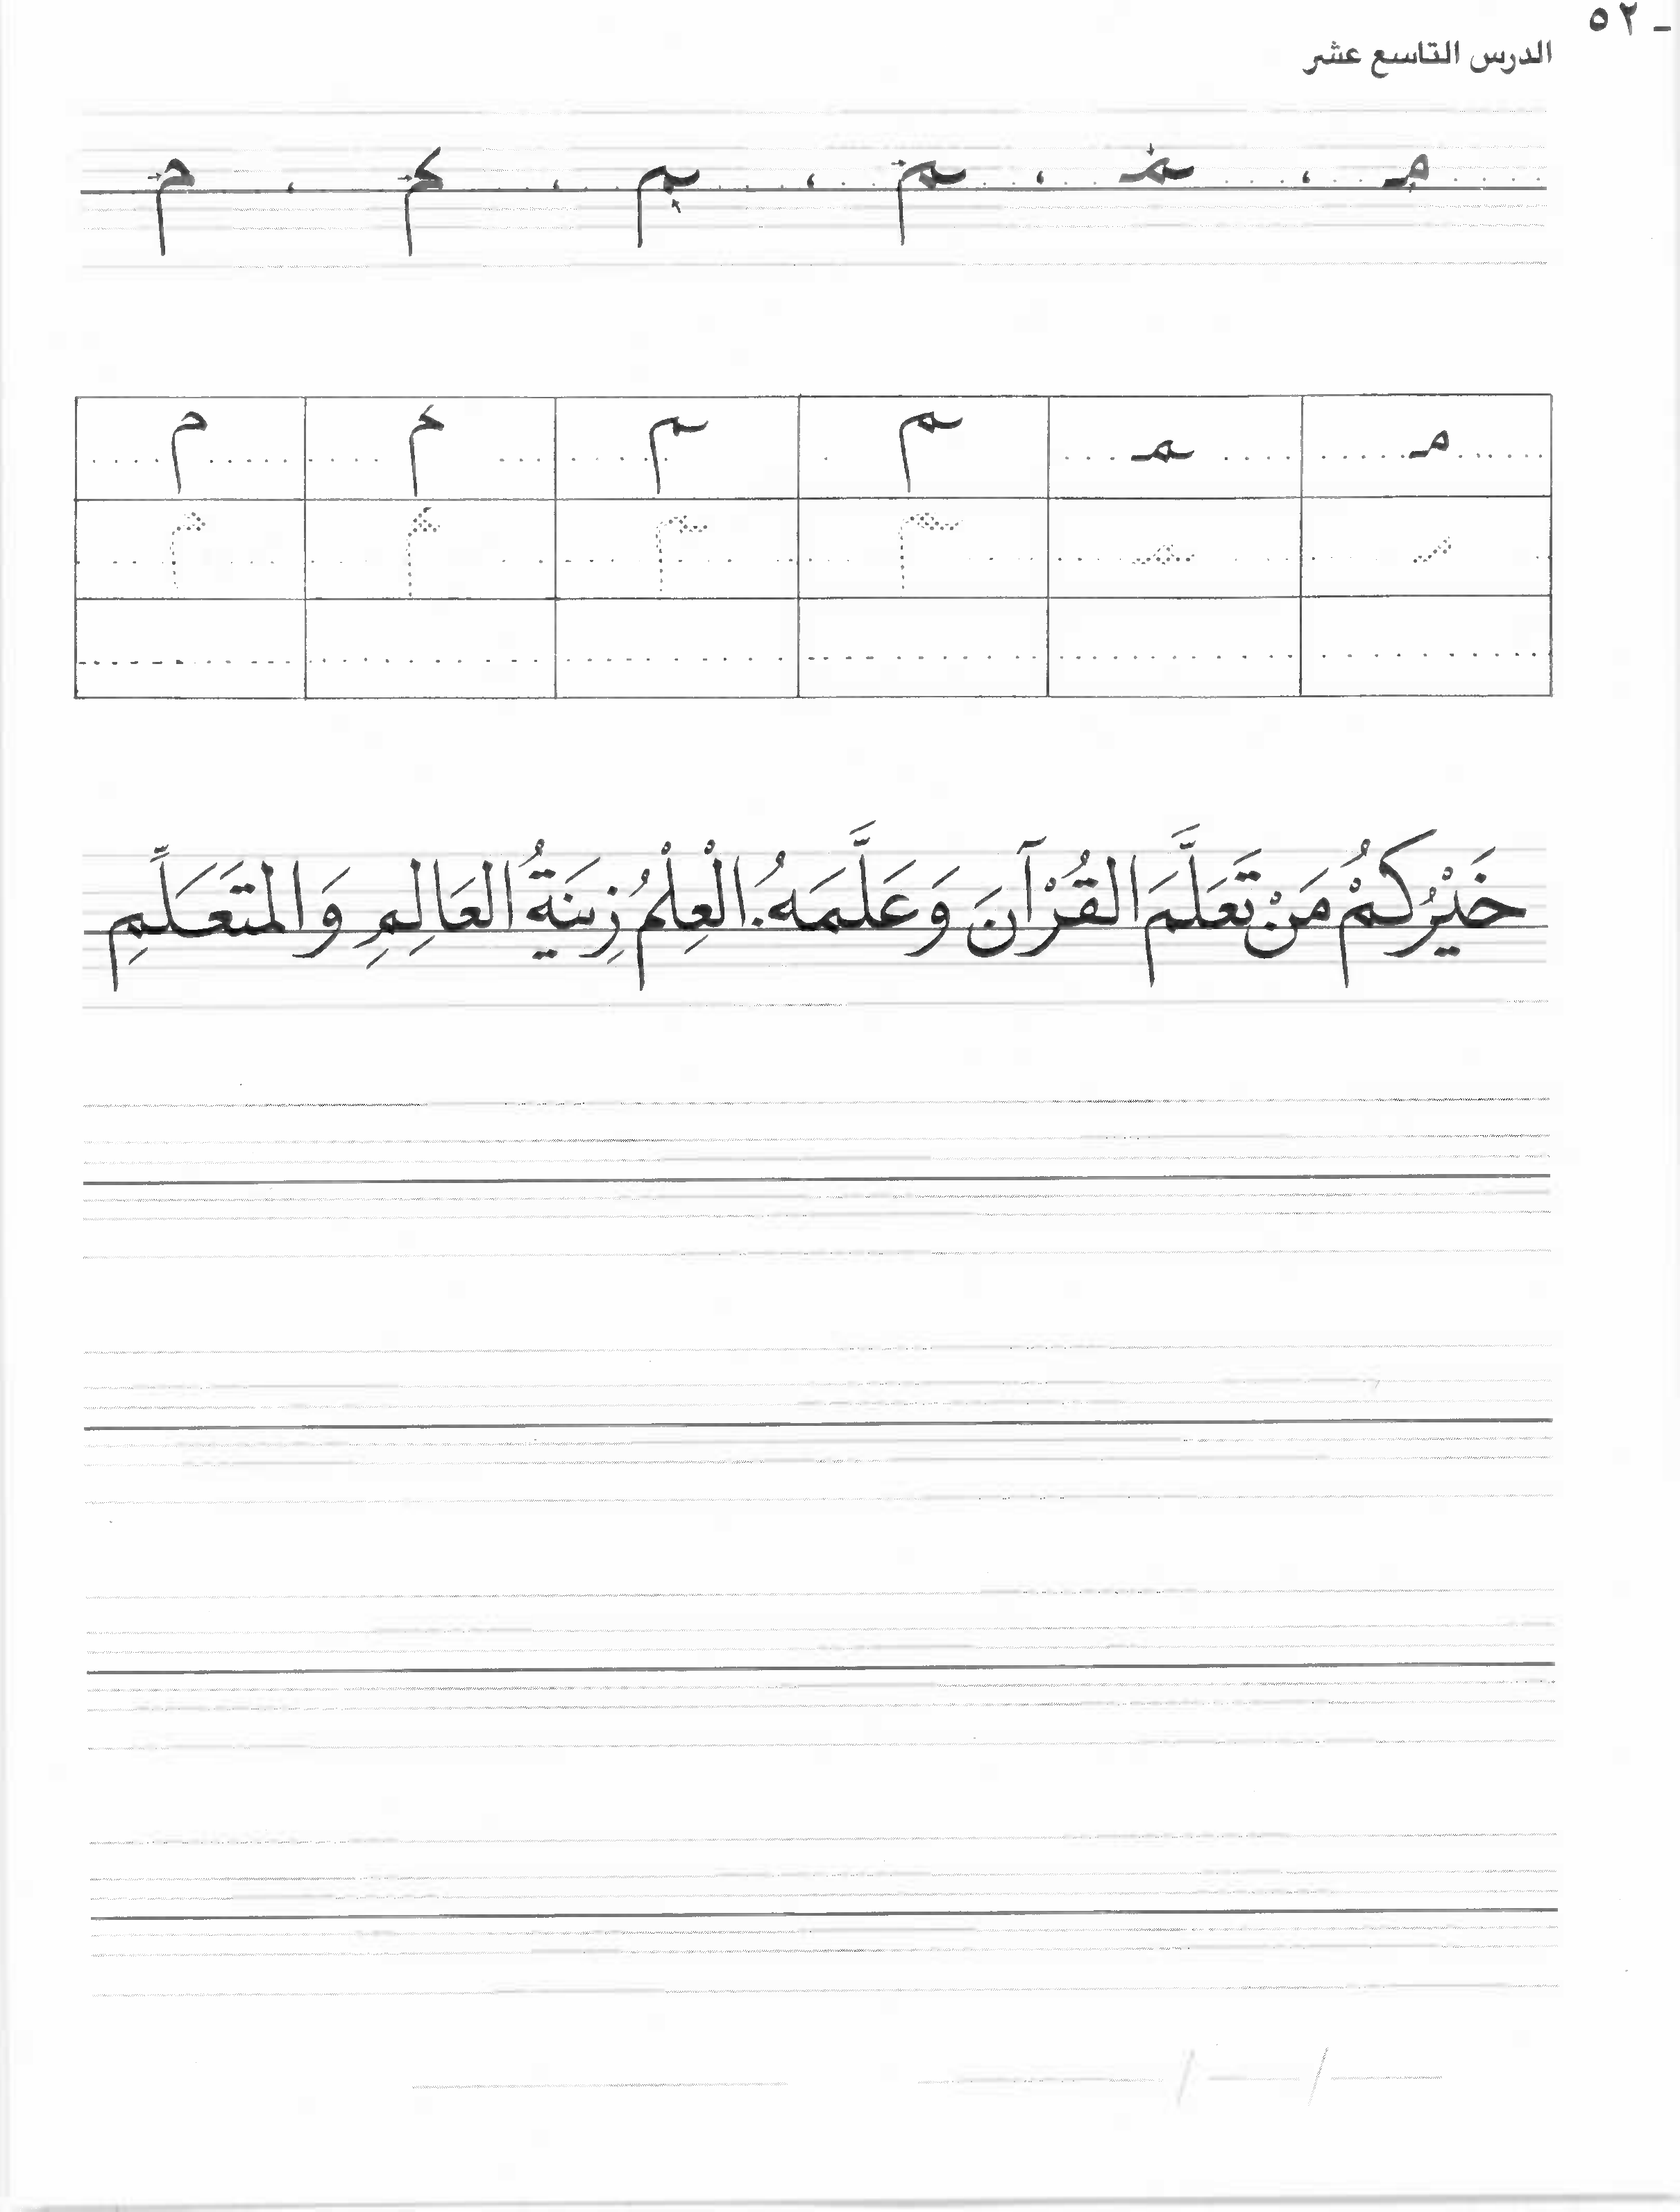 ٥٢ -
الدرس التاسع عشر
مـ ، ـمـ ، ـم ، ـم ، م ، م
مـ ـمـ ـم ـم م م
مـ ـمـ ـم ـم م م
خَيْرُكُمْ مَنْ تَعَلَّمَ القُرْآنَ وَعَلَّمَهُ. العِلْمُ زِينَةُ العَالِمِ وَالمتَعَلِّمِ